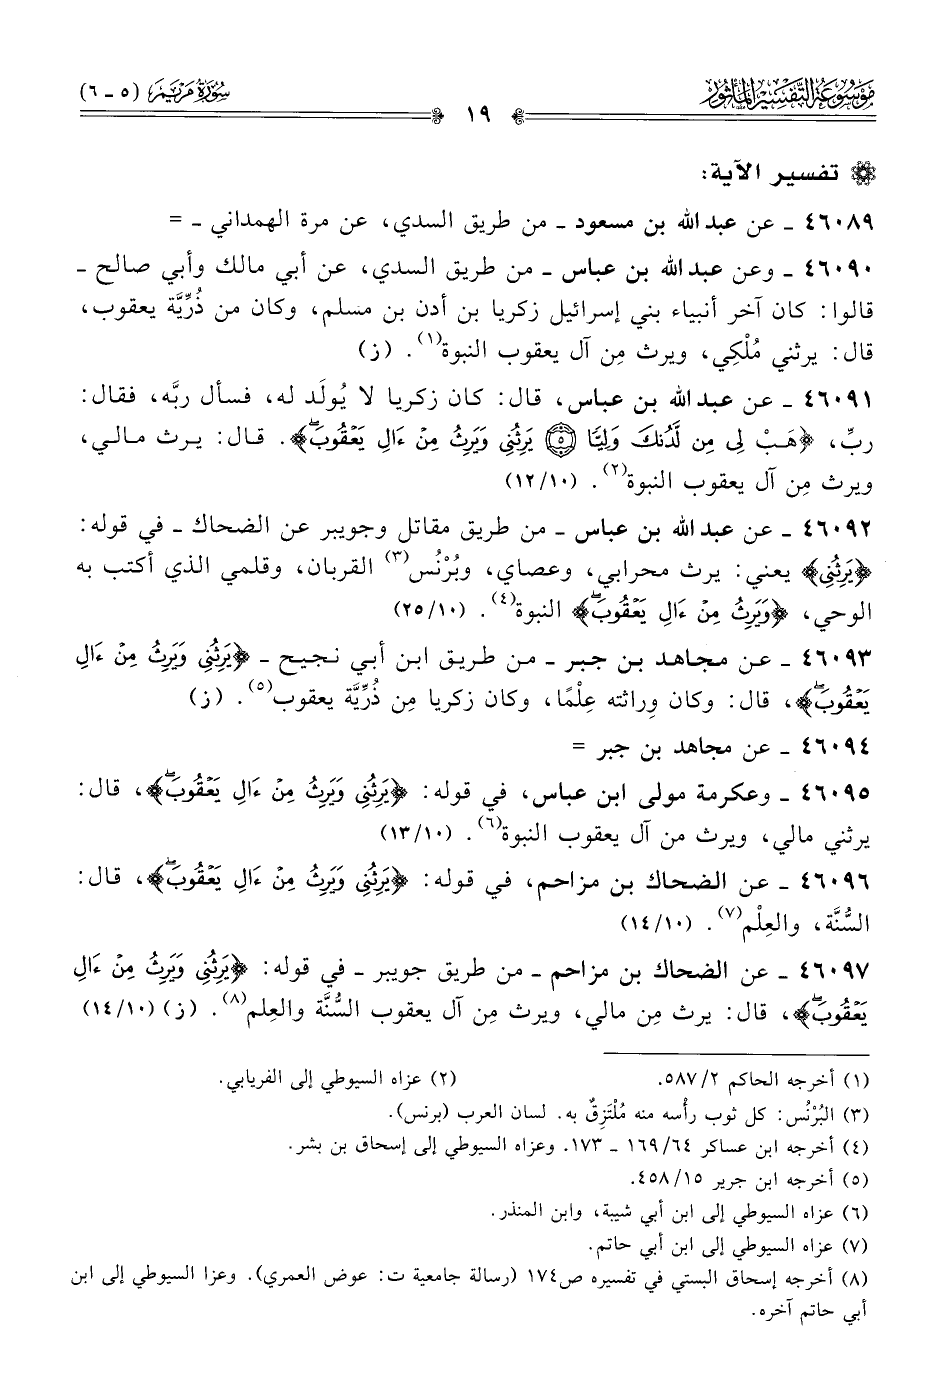 موسوعة التفسير المأثور
سورة مريم (٥ - ٦)
١٩
تفسير الآية:
٤٦٠٨٩ - عن عبد الله بن مسعود - من طريق السدي، عن مرة الهمداني - =
٤٦٠٩٠ - وعن عبد الله بن عباس - من طريق السدي، عن أبي مالك وأبي صالح -
قالوا: كان آخر أنبياء بني إسرائيل زكريا بن أدن بن مسلم، وكان من ذُرِّيَّة يعقوب،
قال: يرثني مُلْكِي، ويرث مِن آل يعقوب النبوة(١). (ز)
٤٦٠٩١ - عن عبد الله بن عباس، قال: كان زكريا لا يُولَد له، فسأل ربَّه، فقال:
ربِّ، ﴿هَبْ لِى مِن لَّدُنكَ وَلِيًّا ۝٥ يَرِثُنِى وَيَرِثُ مِنْ ءَالِ يَعْقُوبَۖ﴾. قال: يرث مالي،
ويرث مِن آل يعقوب النبوة(٢). (١٠/ ١٢)
٤٦٠٩٢ - عن عبد الله بن عباس - من طريق مقاتل وجويبر عن الضحاك - في قوله:
﴿يَرِثُنِى﴾ يعني: يرث محرابي، وعصاي، وبُرْنُس(٣) القربان، وقلمي الذي أكتب به
الوحي، ﴿وَيَرِثُ مِنْ ءَالِ يَعْقُوبَۖ﴾ النبوة(٤). (١٠/ ٢٥)
٤٦٠٩٣ - عن مجاهد بن جبر - من طريق ابن أبي نجيح - ﴿يَرِثُنِى وَيَرِثُ مِنْ ءَالِ
يَعْقُوبَۖ﴾، قال: وكان وِراثته عِلْمًا، وكان زكريا مِن ذُرِّيَّة يعقوب(٥). (ز)
٤٦٠٩٤ - عن مجاهد بن جبر =
٤٦٠٩٥ - وعكرمة مولى ابن عباس، في قوله: ﴿يَرِثُنِى وَيَرِثُ مِنْ ءَالِ يَعْقُوبَۖ﴾، قال:
يرثني مالي، ويرث من آل يعقوب النبوة(٦). (١٠/ ١٣)
٤٦٠٩٦ - عن الضحاك بن مزاحم، في قوله: ﴿يَرِثُنِى وَيَرِثُ مِنْ ءَالِ يَعْقُوبَۖ﴾، قال:
السُّنَّة، والعِلْم(٧). (١٠/ ١٤)
٤٦٠٩٧ - عن الضحاك بن مزاحم - من طريق جويبر - في قوله: ﴿يَرِثُنِى وَيَرِثُ مِنْ ءَالِ
يَعْقُوبَۖ﴾، قال: يرث مِن مالي، ويرث مِن آل يعقوب السُّنَّة والعِلم(٨). (ز) (١٠/ ١٤)
(١) أخرجه الحاكم ٢/ ٥٨٧. (٢) عزاه السيوطي إلى الفريابي.
(٣) البُرْنُس: كل ثوب رأسه منه مُلْتَزِقٌ به. لسان العرب (برنس).
(٤) أخرجه ابن عساكر ٦٤/ ١٦٩ - ١٧٣. وعزاه السيوطي إلى إسحاق بن بشر.
(٥) أخرجه ابن جرير ١٥/ ٤٥٨.
(٦) عزاه السيوطي إلى ابن أبي شيبة، وابن المنذر.
(٧) عزاه السيوطي إلى ابن أبي حاتم.
(٨) أخرجه إسحاق البستي في تفسيره ص١٧٤ (رسالة جامعية ت: عوض العمري). وعزا السيوطي إلى ابن
أبي حاتم آخره.